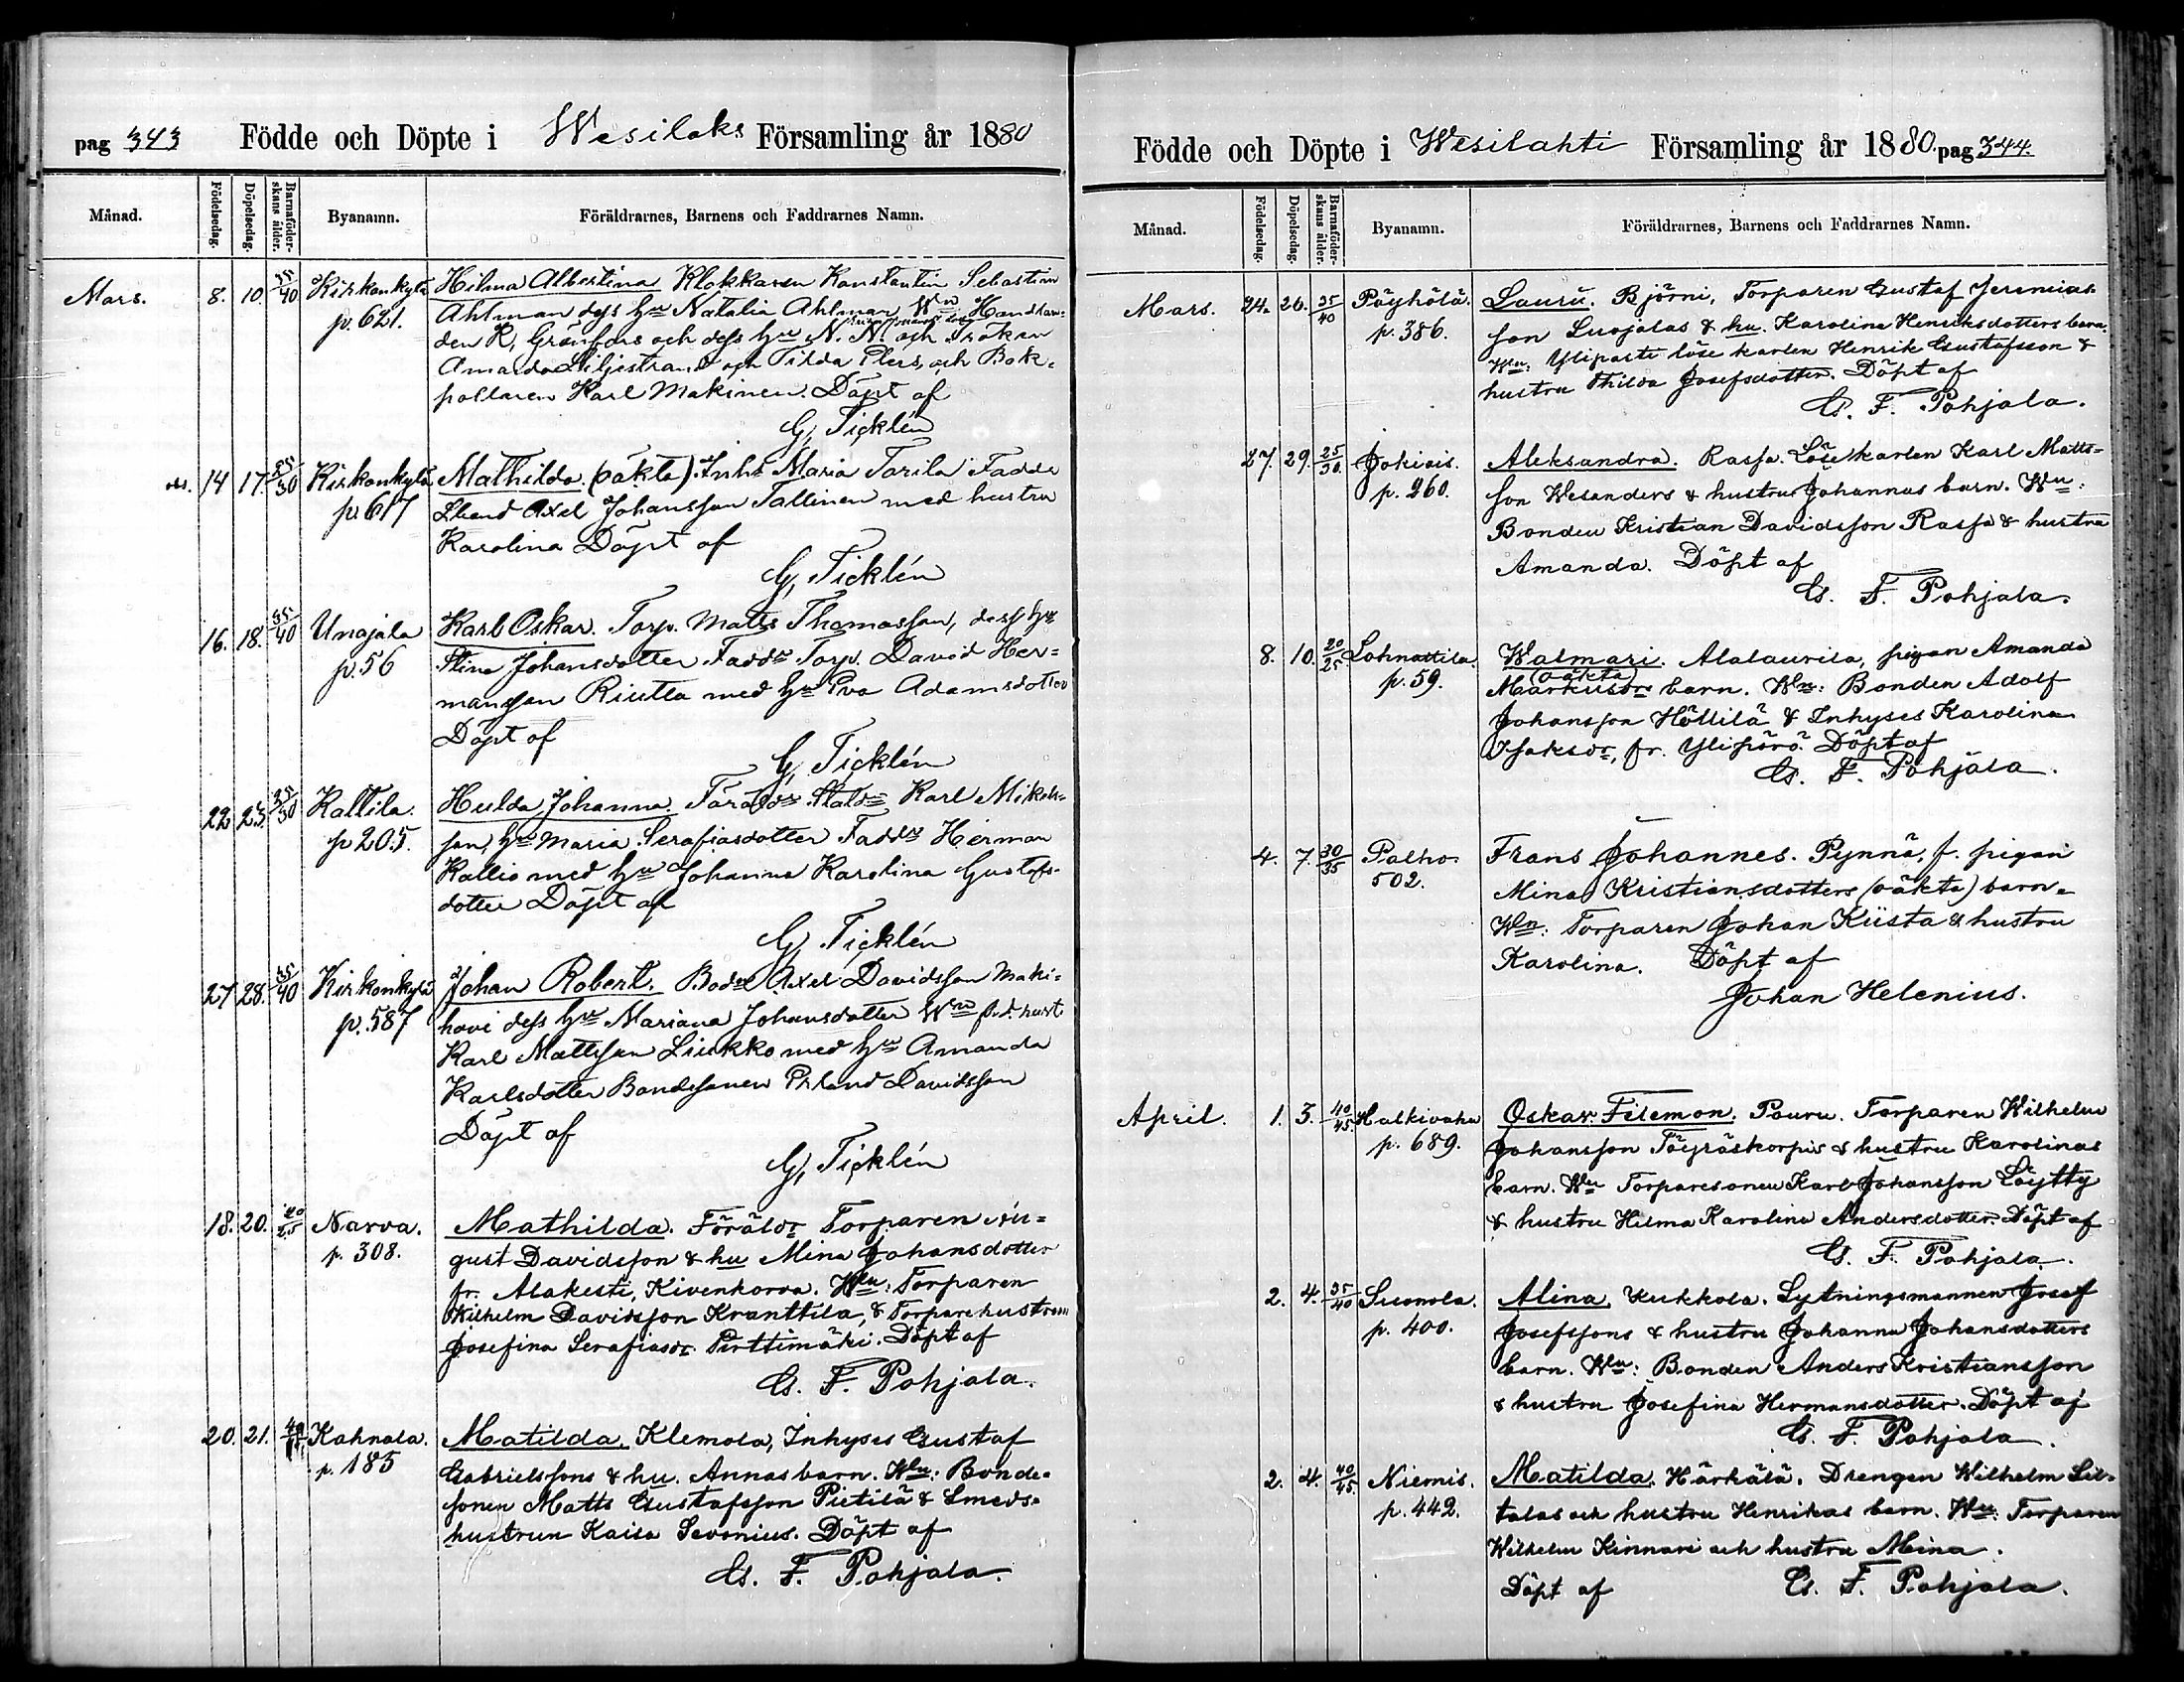 pag 343 Födde och Döpte i Wesilaks Församling år 1880
Månad. Födelsedag. Döpelsedag. Barnaföderskans ålder. Byanamn. Föräldrarnes, Barnens och Faddrarnes Namn.
Mars. 8. 10. 35/40 Kirkonkylä Hilma Albertina Klokkaren Konstantin Sebastian
p. 621. Ahlman dess hu Natalia Ahlman Wn Handlan-
den R, Grönfors och dess hu N. N. och Fröken
Amanda Liljestrand och Tilda Elers, och Bok-
hållaren Karl Makinen. Döpt af
G, Ticklén
ds. 14 17. 25/30 Kirkonkylä Mathilda. (oäkta) Inhs Maria Tarila Fadde
p. 617 Lbond Axel Johansson Tallinen med hustru
Karolina Döpt af
G, Ticklén
16. 18. 35/40 Unajala Karl Oskar. Torp. Matts Thomasson, dess hu
p. 56 Stina Johansdotter Faddr Torp. David Her-
mansson Riutta med hu Eva Adamsdotter
Döpt af
G, Ticklén
22 23. 25/30 Kaltila. Hulda Johanna. Föräldr Karl Mikels-
p 205. son, hu Maria Serafiasdotter Faddr Herman
Kallio med hu Johanna Karolina Gustafs-
dotter Döpt af
G, Ticklén
27 28. 35/40 Kirkonkylä Johan Robert. Axel Davidsson Maki-
p. 587 hovi dess hu Mariana Johansdotter Wn
Karl Mattsson Liukko med hu Amanda
Karlsdotter Bondesonen Erland Davidsson
Döpt af
G, Ticklén
18. 20. 20/25 Narva. Mathilda. Föräldr Torparen Au-
p. 308. gust Davidsson & hu Mina Johansdotter
fr. Alakesti, Kivenkorva. Wn: Torparen
Wilhelm Davidsson Kranttila, & Torparehustrun
Josefina Serafiasdr Pirttimäki. Döpt af
G. F. Pohjala.
20. 21. Kahnala. Matilda. Klemola, Inhyses Gustaf
p. 185 Gabrielssons & hu. Annas barn. Wn: Bonde-
sonen Matts Gustafsson Pietilä & Smeds-
hustrun Kaisa Savonius. Döpt af
G. F. Pohjala.
Födde och Döpte i Wesilahti Församling år 1880. pag 344.
Månad. Födelsedag. Döpelsedag. Barnaföderskans ålder. Byanamn. Föräldrarnes, Barnens och Faddrarnes Namn.
Mars. 24. 26. 35/40 Pöyhölä. Lauru. Björni, Torparen Gustaf Jeremias-
p. 386. son Luojalas & hu. Karolina Henriksdotters barn.
Wn: Yliparti löse karlen Henrik Gustafsson &
hustru Thilda Josefsdotter. Döpt af
G. F. Pohjala.
27. 29. 25/30. Jokiois. Aleksandra. Rassa. Lösekarlen Karl Matts-
p. 260. son Wesanders & hustru Johannas barn. Wn:
Bonden Kristian Davidsson Rassa & hustru
Amanda. Döpt af
G. F. Pohjala.
8. 10. 20/25 Lohnattila. Walmari. Alalaurila, pigan Amanda
p. 59. Markusdrs (oäkta) barn. Wn: Bonden Adolf
Johansson Höllilä & Inhyses Karolina
Isaksdr, fr. Ylipörö. Döpt af
G. F. Pohjala.
4. 7. 30/35 Palho Frans Johannes. Pynnä, f. pigan
502. Mina Kristiansdotters (oäkta) barn.
Wn: Torparen Johan Kiista & hustru
Karolina. Döpt af
Johan Helenius.
April. 1. 3. 40/45. Halkivaha Oskar Filemon. Pouru. Torparen Wilhelm
p. 689. Johansson Töyräskorpis & hustru Karolinas
barn. Wn Torparesonen Karl Johansson Löytty
& hustru Hilma Karolina Andersdotter. Döpt af
G. F. Pohjala.
2. 4. 35/40 Suomela. Alina. Kukkola. Lytningsmannen Josef
p. 400. Josefssons & hustru Johanna Johansdotters
barn. Wn: Bonden Anders Kristiansson
& hustru Josefina Hermansdotter. Döpt af
G. F. Pohjala.
2. 4. 40/45. Niemis. Matilda. Härkälä. Drengen Wilhelm Sil-
p. 442. talas och hustru Henrikas barn. Wn: Torparen
Wilhelm Kinnari och hustru Mina.
Döpt af G. F. Pohjala.